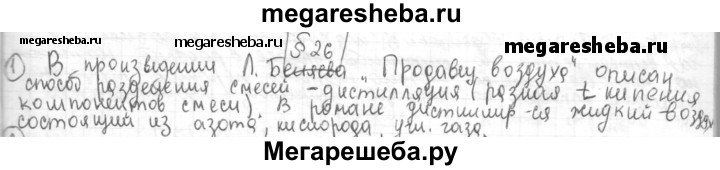 megaresheba.ru
§ 26
megaresheba.ru
megaresheba.ru
1 В произведении Л. Беляева „Продавец воздуха" описан
способ разделения смесей - дистилляция (разная t кипения
компонентов смеси). В романе дистиллир-ся жидкий воздух
состоящий из азота, кислорода, угл. газа.
Мегарешеба.ру